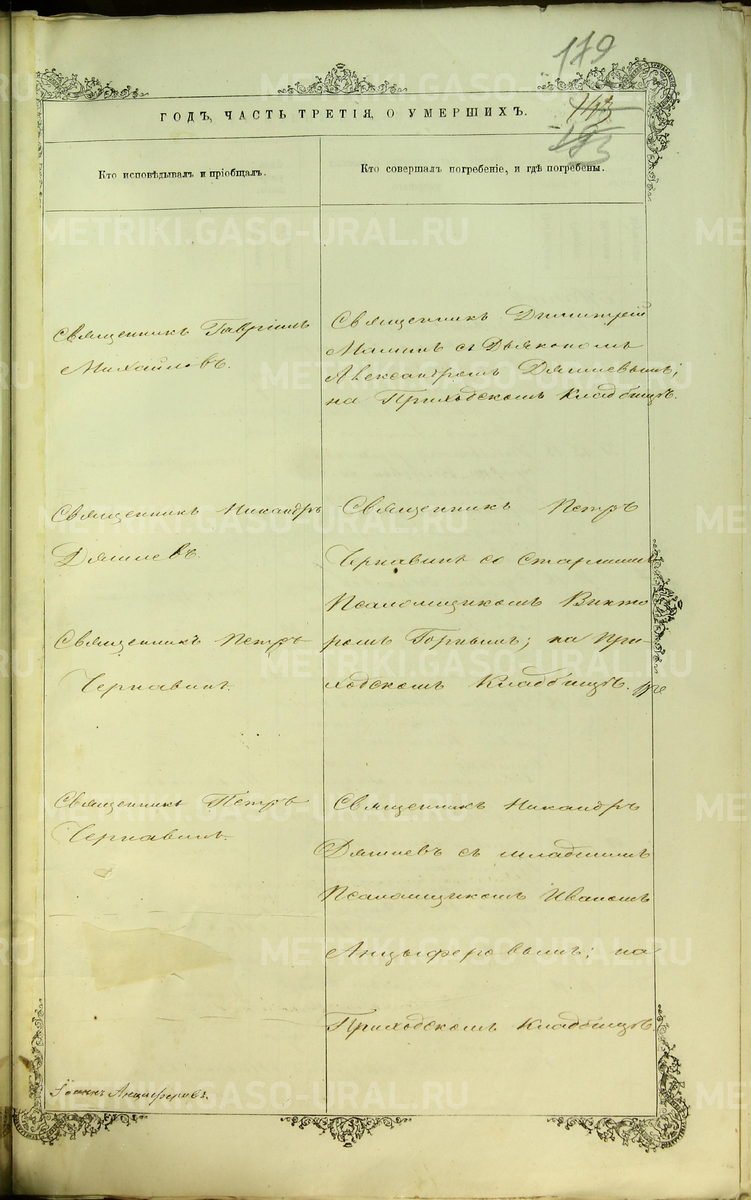 179
143
193
ГОДЪ, ЧАСТЬ ТРЕТІЯ, О УМЕРШИХЪ.
Кто исповѣдывалъ и пріобщалъ.
Кто совершалъ погребеніе, и гдѣ погребены.
METRIKI.GASO-URAL.RU
Священникъ Гавріилъ
Михайловъ.
Священникъ Димитрій
Маминъ съ Дьякономъ
Александромъ Дягилевымъ;
на Приходскомъ Кладбищѣ.
Священникъ Никандръ
Дягилевъ
Священникъ Петръ
Чернавинъ.
Священникъ Петръ
Чернавинъ со Старшимъ
Псаломщикомъ Викто
ромъ Горнымъ; на При-
ходскомъ Кладбищѣ.
Священникъ Петръ
Чернавинъ.
Священникъ Никандръ
Дягилевъ съ младшимъ
Псаломщикомъ Иваномъ
Анцыферовымъ; на
Приходскомъ Кладбищѣ
Іоаннъ Анцыферовъ.